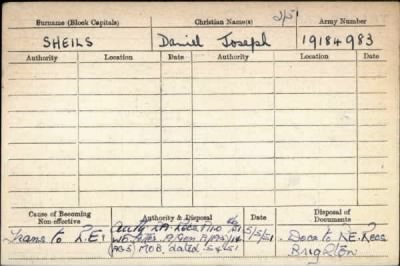 Surname (Block Capitals) Christian Name(s) Army Number
SHEILS Daniel Joseph 19184983
Authority Location Date Authority Location Date
Cause of Becoming Non-effective Authority & Disposal Date Disposal of Documents
Trans to R.E. 5/5/51 Docs to R.E. Recs
(AG5) M.O.B. dated Brighton